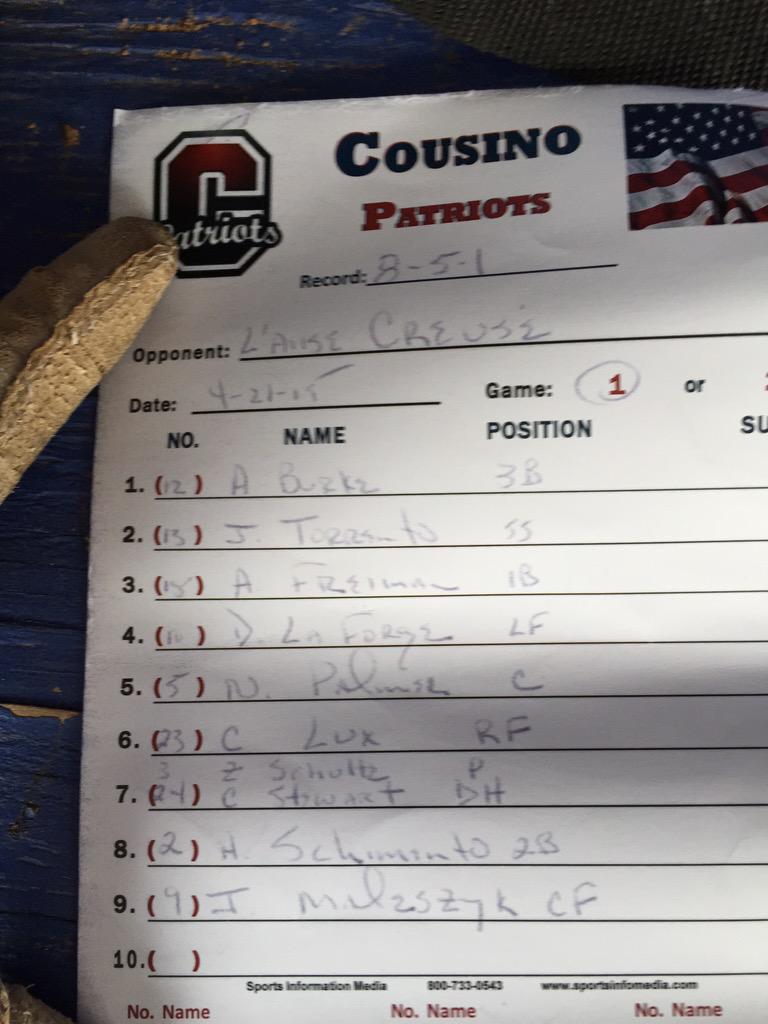 COUSINO
Patriots
PATRIOTS
Record: 8-5-1
Opponent: L'Anse CREUSE
Date: 4-21-15 Game: 1 or
NO. NAME POSITION SU
1. (12) A Burke 3B
2. (13) J. Torrento SS
3. (15) A FREIMAN 1B
4. (10) D. LaForge LF
5. (5) N. Palmer C
6. (23) C Lux RF
3 Z Schultz P
7. (24) C Stewart DH
8. (2) H. Schimento 2B
9. (9) J CF
10. ( )
Sports Information Media 800-733-0543 www.sportsinfomedia.com
No. Name No. Name No. Name